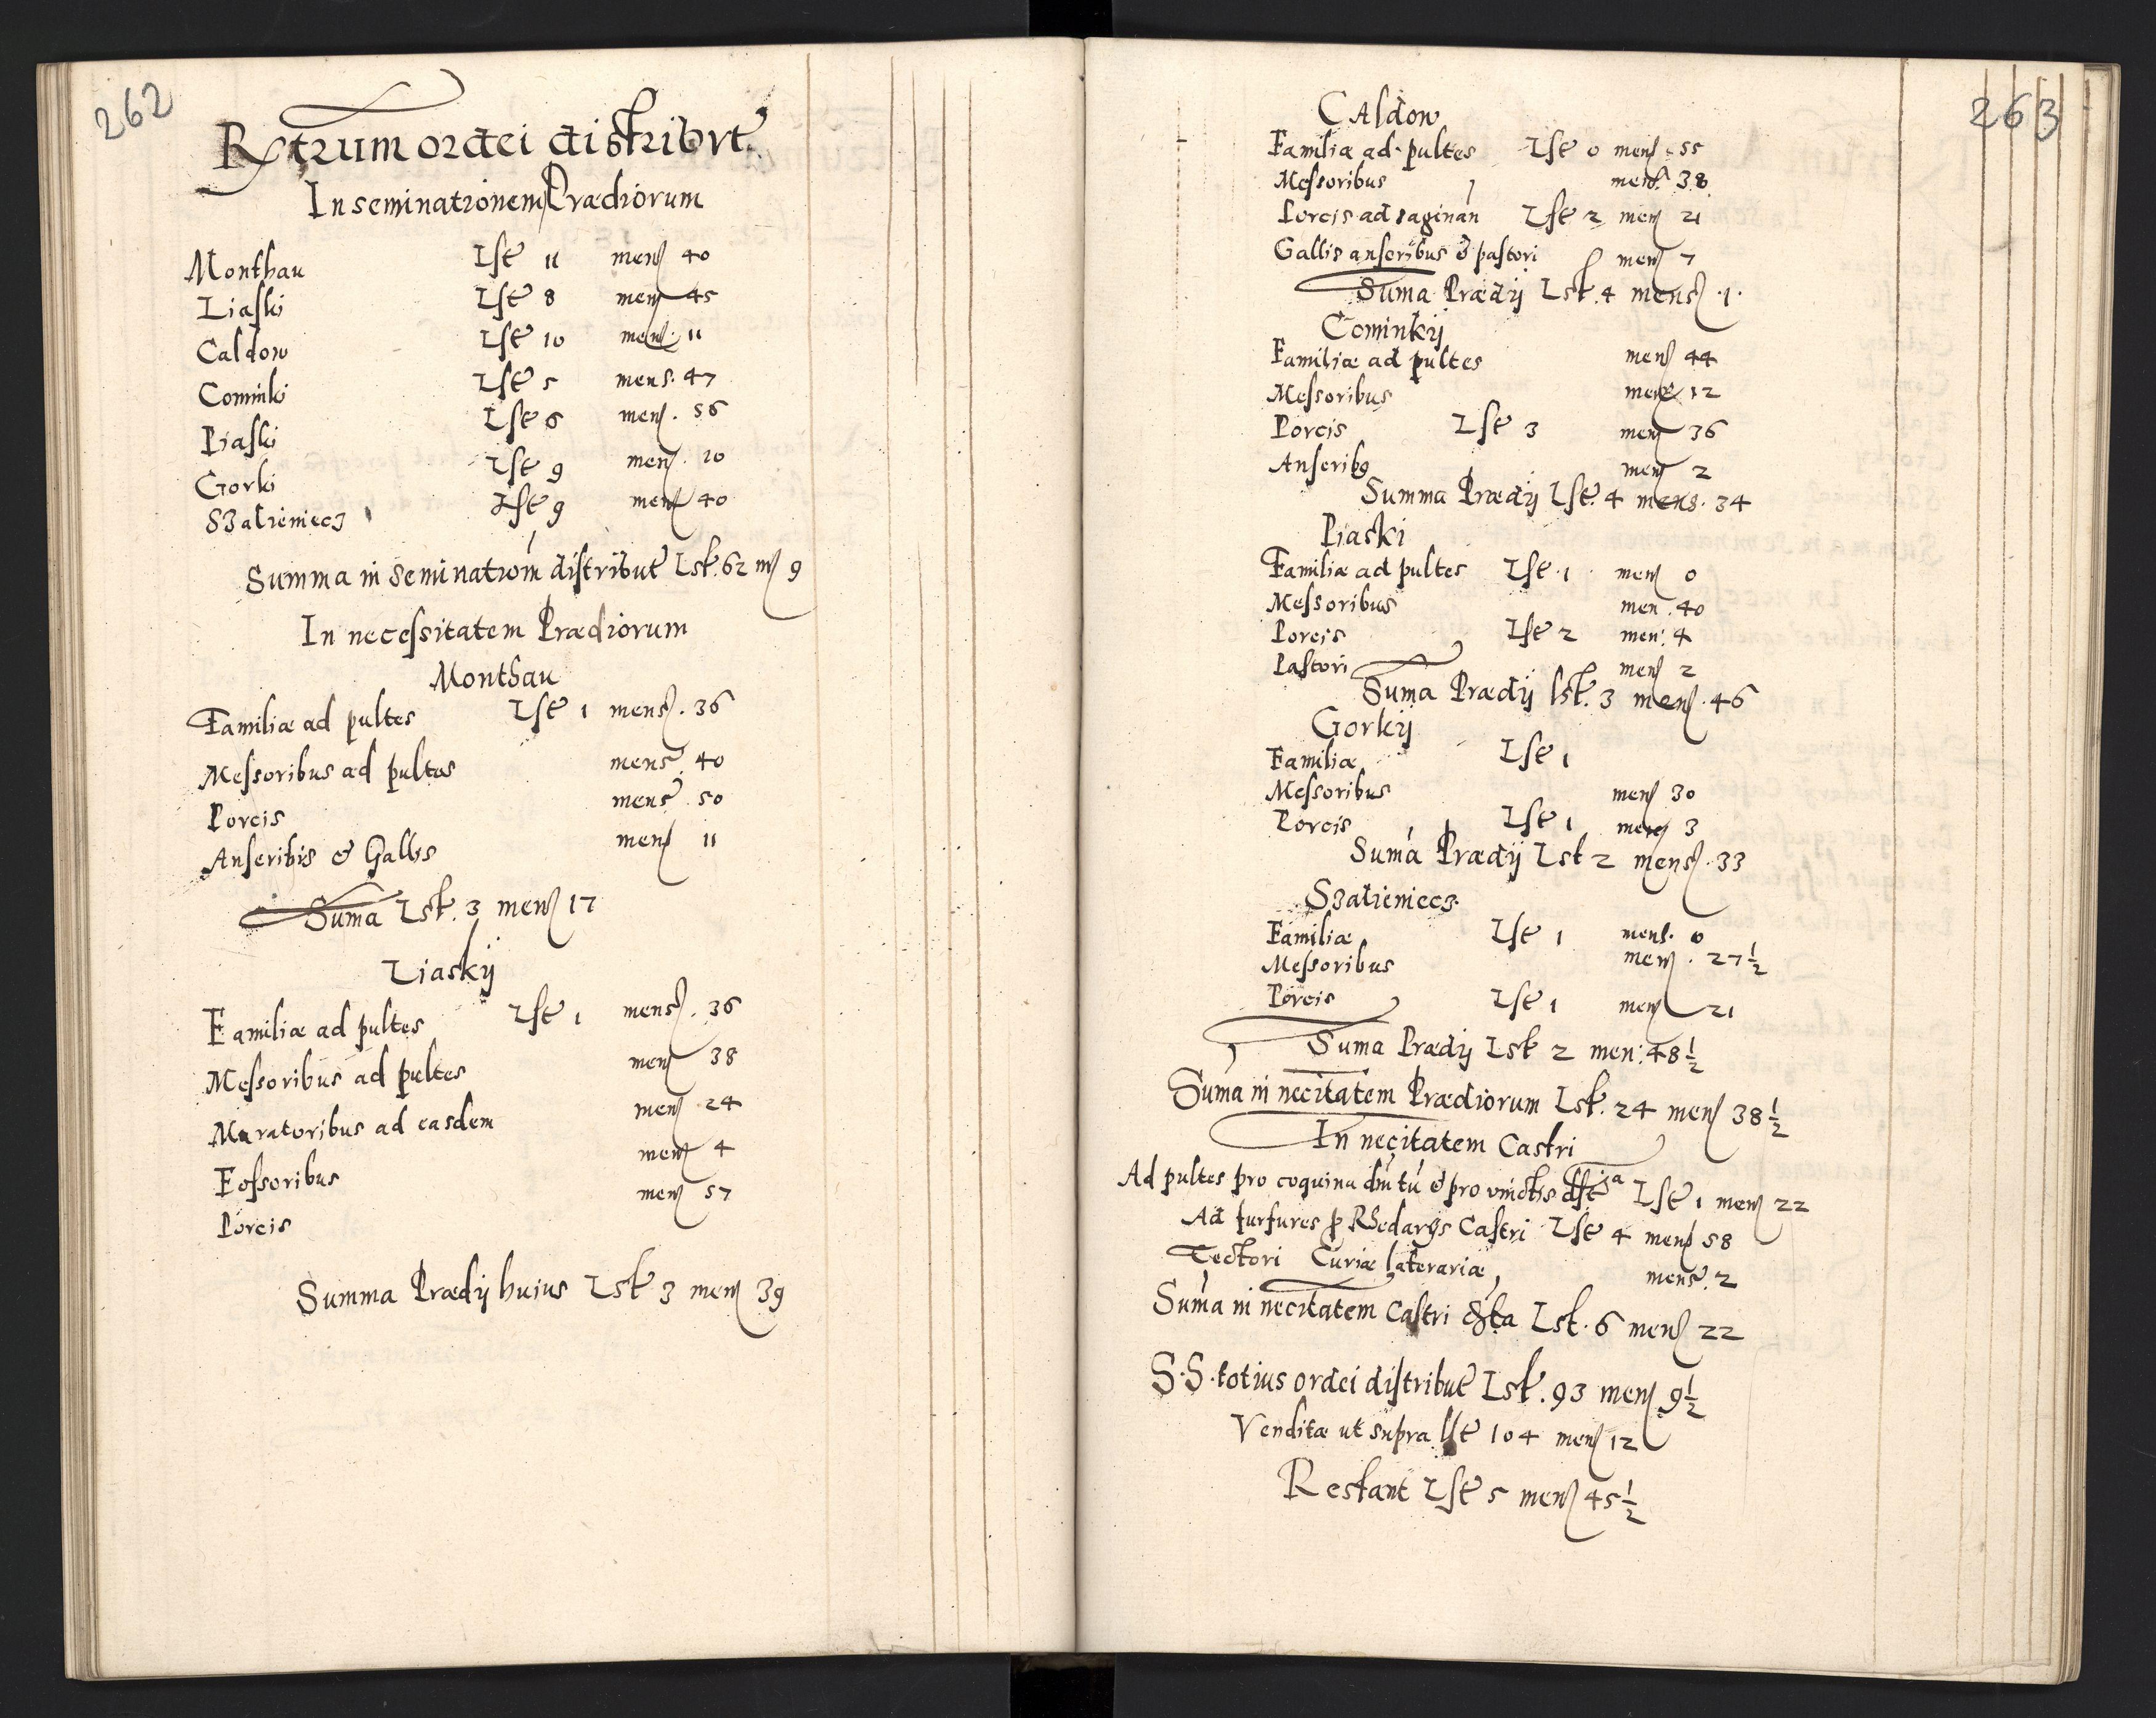 262
Rgtrum ordei distribut
In seminationem Prædiorum
Monthau Lst 11 mens 40
Liaski Lst 8 mens 45
Caldow Lst 10 mens 11
Cominki Lst 5 mens. 47
Piaski Lst 6 mens. 56
Gorki Lst 9 mens. 10
Szatieniecz Lst 9 mens 40
Summa in seminationem distribut Lst. 62 ms 9
In necessitatem Prædiorum
Monthau
Familiæ ad pultes Lst 1 mens. 36
Messoribus ad pultes mens. 40
Porcis mens. 50
Anseribus & Gallis mens 11
Suma Lst. 3 mens 17
Liaskÿ
Familiæ ad pultes Lst 1 mens. 36
Messoribus ad pultes mens 38
Muratoribus ad easdem mens 24
Fossoribus mens 4
Porcis mens 57
Summa Prædÿ huius Lst 3 mens 39
263
Caldow
Familiæ ad pultes Lst 0 mens. 55
Messoribus mens. 38
Porcis ad saginan Lst 2 mens 21
Gallis anseribus & pastori mens 7
Suma Prædÿ Lst. 4 mens. 1.
Cominkÿ
Familiæ ad pultes mens 44
Messoribus mens 12
Porcis Lst 3 mens 36
Anserib9 mens 2
Summa Prædÿ Lst. 4 mens. 34
Piaski
Familiæ ad pultes Lst. 1. mens 0
Messoribus men. 40
Porcis Lst 2 men: 4
Pastori mens 2
Suma Prædÿ lst. 3 mens. 46
Gorkÿ
Familiæ Lst 1
Messoribus mens 30
Porcis Lst 1 mens 3
Suma Prædÿ Lst 2 mens. 33
Szatieniecz.
Familiæ Lst 1 mens. 0
Messoribus mens. 27 1/2
Porcis Lst 1 mens 21
Suma Prædÿ Lst 2 men: 48 1/2
Suma in necitatem Prædiorum Lst. 24 mens 38 1/2
In necitatem Castri
Ad pultes pro coquina & pro vinctis Lst 1 mens 22
Ad furfures p Rhedarÿs Castri Lst 4 mens 58
Tectori Curiæ laterariæ mens. 2
Suma in necitatem Castri Lst. 6 mens 22
S.S. totius ordei distribut Lst. 93 mens 9 1/2
Venditæ ut supra lst 104 mens 12
Restant Lst 5 mens 45 1/2